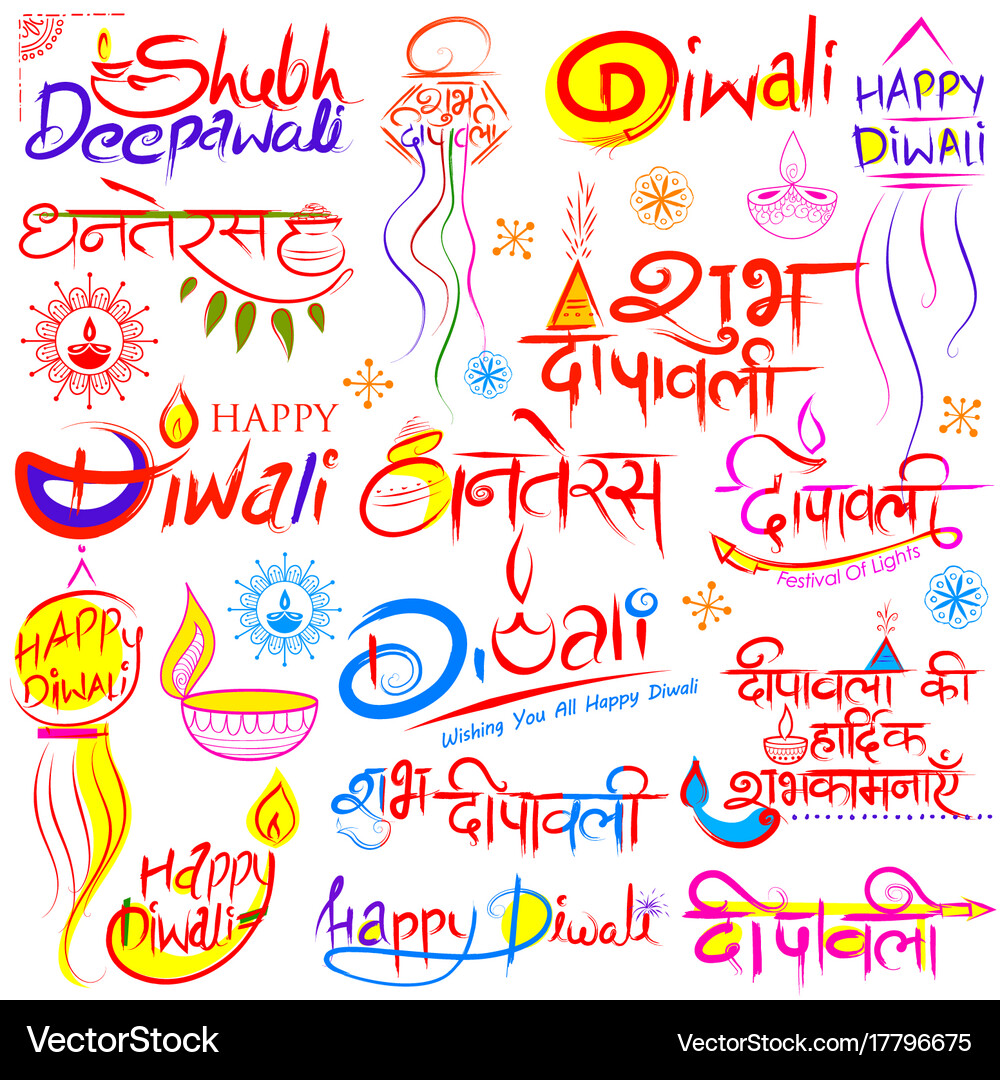 Shubh
Deepawali
शुभ
दीपावली
Diwali
HAPPY
DIWALI
धनतेरस
शुभ
दीपावली
HAPPY
Diwali
धनतेरस
दीपावली
Festival Of Lights
HAPPY
DIWALI
Diwali
Wishing You All Happy Diwali
दीपावली की
हार्दिक
शुभकामनाएँ
शुभ दीपावली
Happy
Diwali
Happy Diwali
दीपावली
VectorStock®
VectorStock.com/17796675